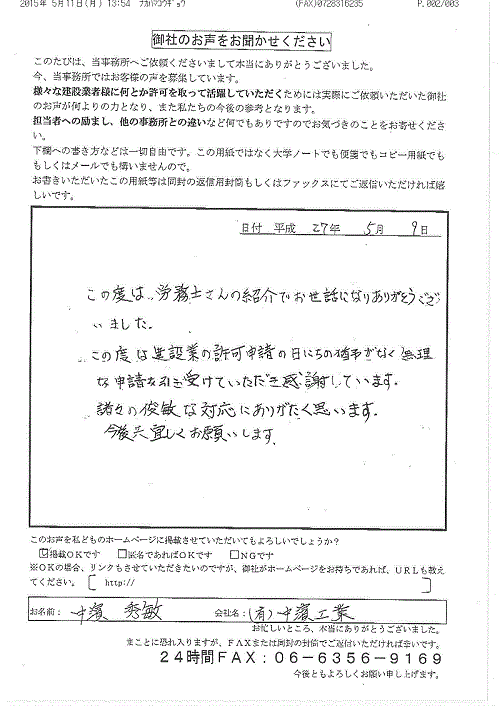 2015年 5月11日(月) 13:54 ナカハマコウギョウ (FAX)0728316235 P.002/003
御社のお声をお聞かせください
このたびは、当事務所へご依頼くださいまして本当にありがとうございました。
今、当事務所ではお客様の声を募集しています。
様々な建設業者様に何とか許可を取って活躍していただくためには実際にご依頼いただいた御社
のお声が何よりの力となり、また私たちの今後の参考となります。
担当者への励まし、他の事務所との違いなど何でもありですのでお気づきのことをお寄せくださ
い。
下欄への書き方などは一切自由です。この用紙ではなく大学ノートでも便箋でもコピー用紙でも
もしくはメールでも構いませんので。
お書きいただいたこの用紙等は同封の返信用封筒もしくはファックスにてご返信いただければ嬉
しいです。
日付 平成 27年 5月 9日
この度は、労務士さんの紹介でお世話になりありがとうござ
いました。
この度は建設業の許可申請の日にちの猶予がなく無理
な申請を引き受けていただき感謝しています。
諸々の俊敏な対応にありがたく思います。
今後共宜しくお願いします。
このお声を私どものホームページに掲載させていただいてもよろしいでしょうか?
☑掲載OKです □匿名であればOKです □NGです
※OKの場合、リンクもさせていただきたいのですが、御社がホームページをお持ちであれば、URLも教え
てください。 [ http:// ]
お名前: 中濱 秀敏 会社名:(有)中濱工業
お忙しいところ、本当にありがとうございました。
まことに恐れ入りますが、FAXまたは同封の封筒でご返信いただければ幸いです。
24時間FAX:06-6356-9169
今後ともよろしくお願い申し上げます。